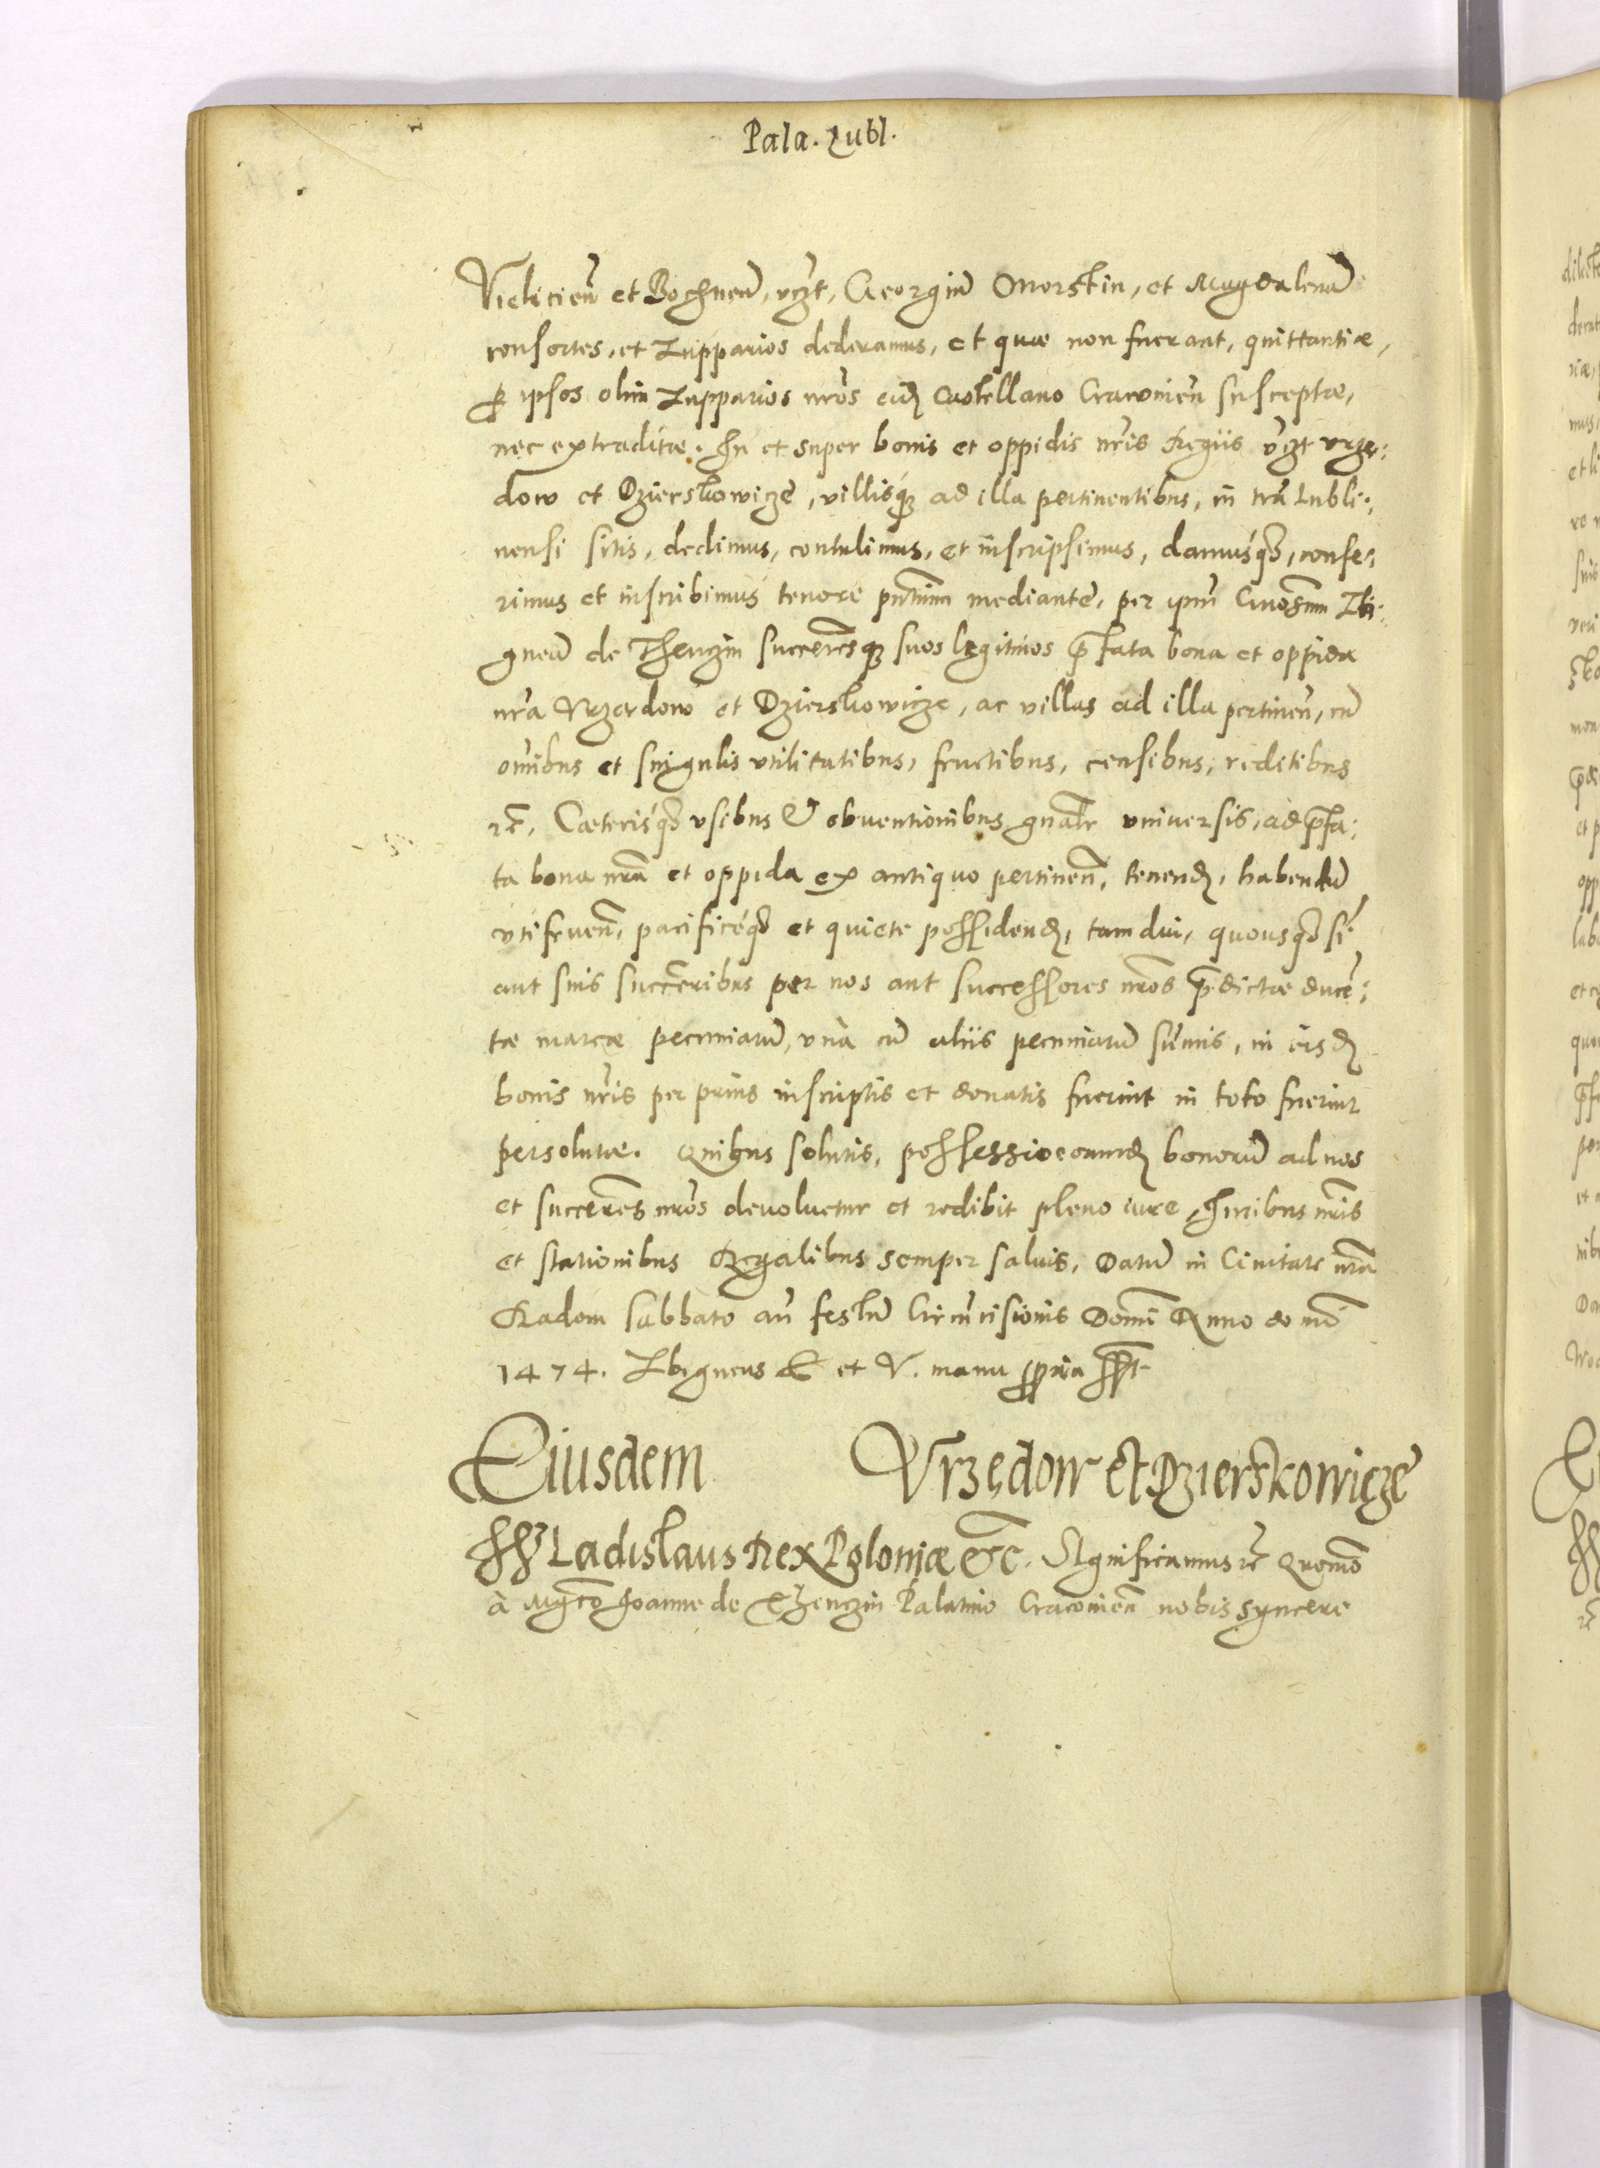 Pala. Lubl.
Vielicień et Bochneñ, vczt, Georgiũ Morstin, et Magdalenã
consortes, et Zupparios dederamus, et quæ non fuerant, quittantiæ,
ꝑ ipsos olim Zupparios nr̃os eidẽ Castellano Cracovień susceptæ,
nec extraditæ. In et super bonis et oppidis nr̃is Regiis vczt Vrze:
dow et Dzierskowicze, villisq́ꝫ ad illa pertinentibus, in tr̃a Lubli:
nensi sitis, dedimus, contulimus, et inscripsimus, damusq́ꝫ, confe:
rimus et inscribimus tenore pñtium mediante, per ipm̃ Gñosum Zbi:
gneũ de Thenczin succeresqꝫ suos legitimos p̃fata bona et oppida
nr̃a Vrzendow et Dzierskowicze, ac villas ad illa pertineñ, cũ
om̃ibus et singulis vtilitatibus, fructibus, censibus, reditibus
&c̃, Cæterisq́ꝫ vsibus & obventionibus gñalr̃ vniversis, ad p̃fa:
ta bona nr̃a et oppida ex antiquo pertineñ, tenend, habendũ
vtifrueñ, pacificéqꝫ et quiete possidend, tamdiu, quousqꝫ si:
aut suis succeribus per nos aut successores nr̃os p̃dictæ ducẽ:
tæ marcæ pecuniarũ, vnà cũ aliis pecuniarũ sum̃is, in eisd
bonis nr̃is per prius inscriptis et donatis fuerint in toto fuerint
persolutæ. Quibus solutis, possessio eorumd bonorũ ad nos
et succeres nr̃os devolvetur et redibit pleno iure, Iuribus nr̃is
et stationibus Regalibus semper salvis, Datũ in Civitate nr̃a
Radom sabbato añ festũ Circũcisionis Domĩ Anno do mĩ
1474. Zbigneus & et V. manu ꝓpria sspt
Eiusdem Vrzędow et Dzierskowicze
Ladislaus Rex Poloniæ &c. Significamus &c̃ Quomõ
à Mgco Joanne de Thenczin Palatino Cracovień nobis syncere